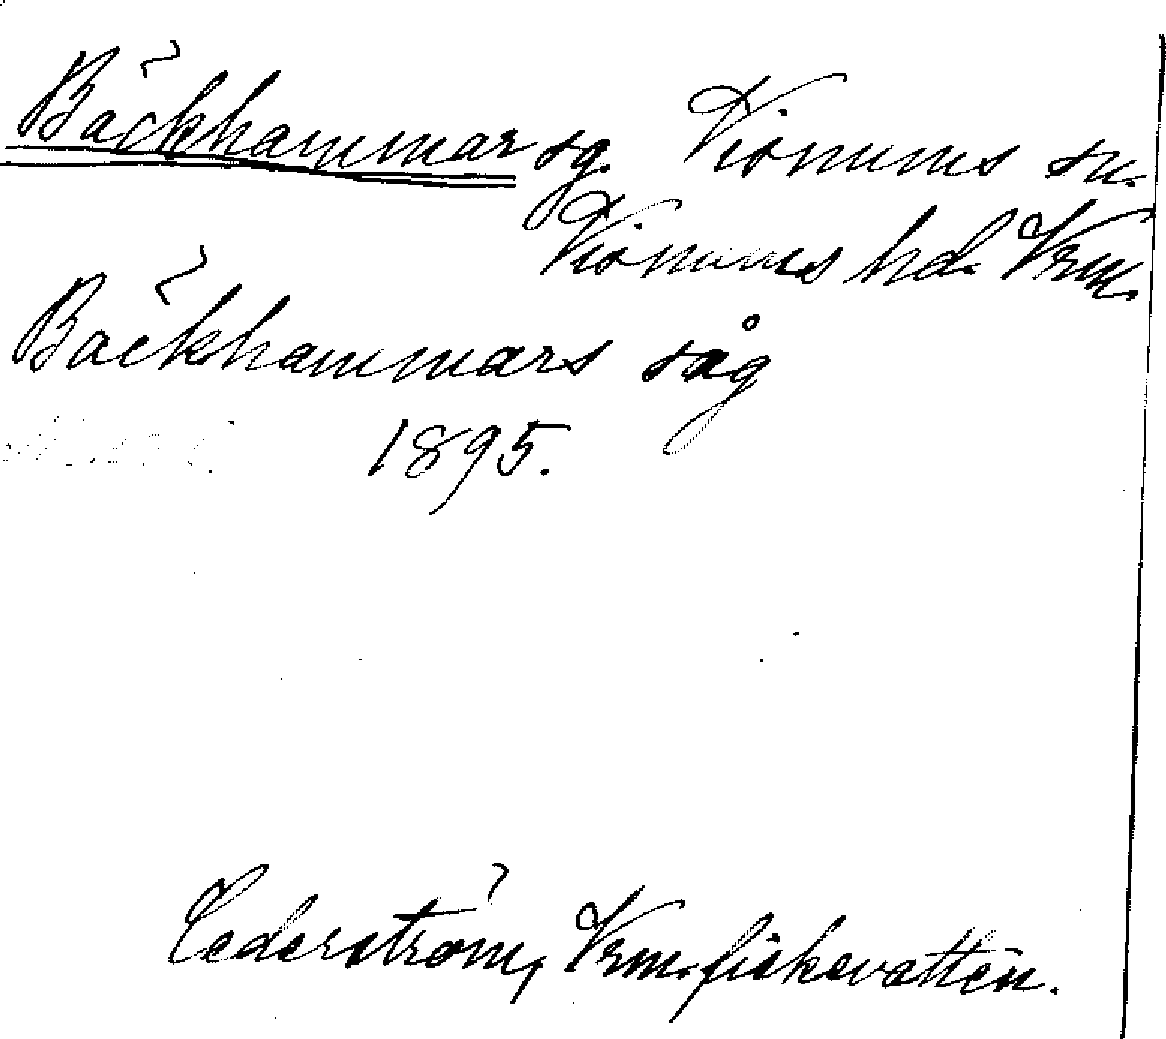 Bäckhammar sg. Visnums sn.
Visnums hd. Vrm.
Bäckhammars såg
1895.
Cederström, Vrm. fiskevatten.